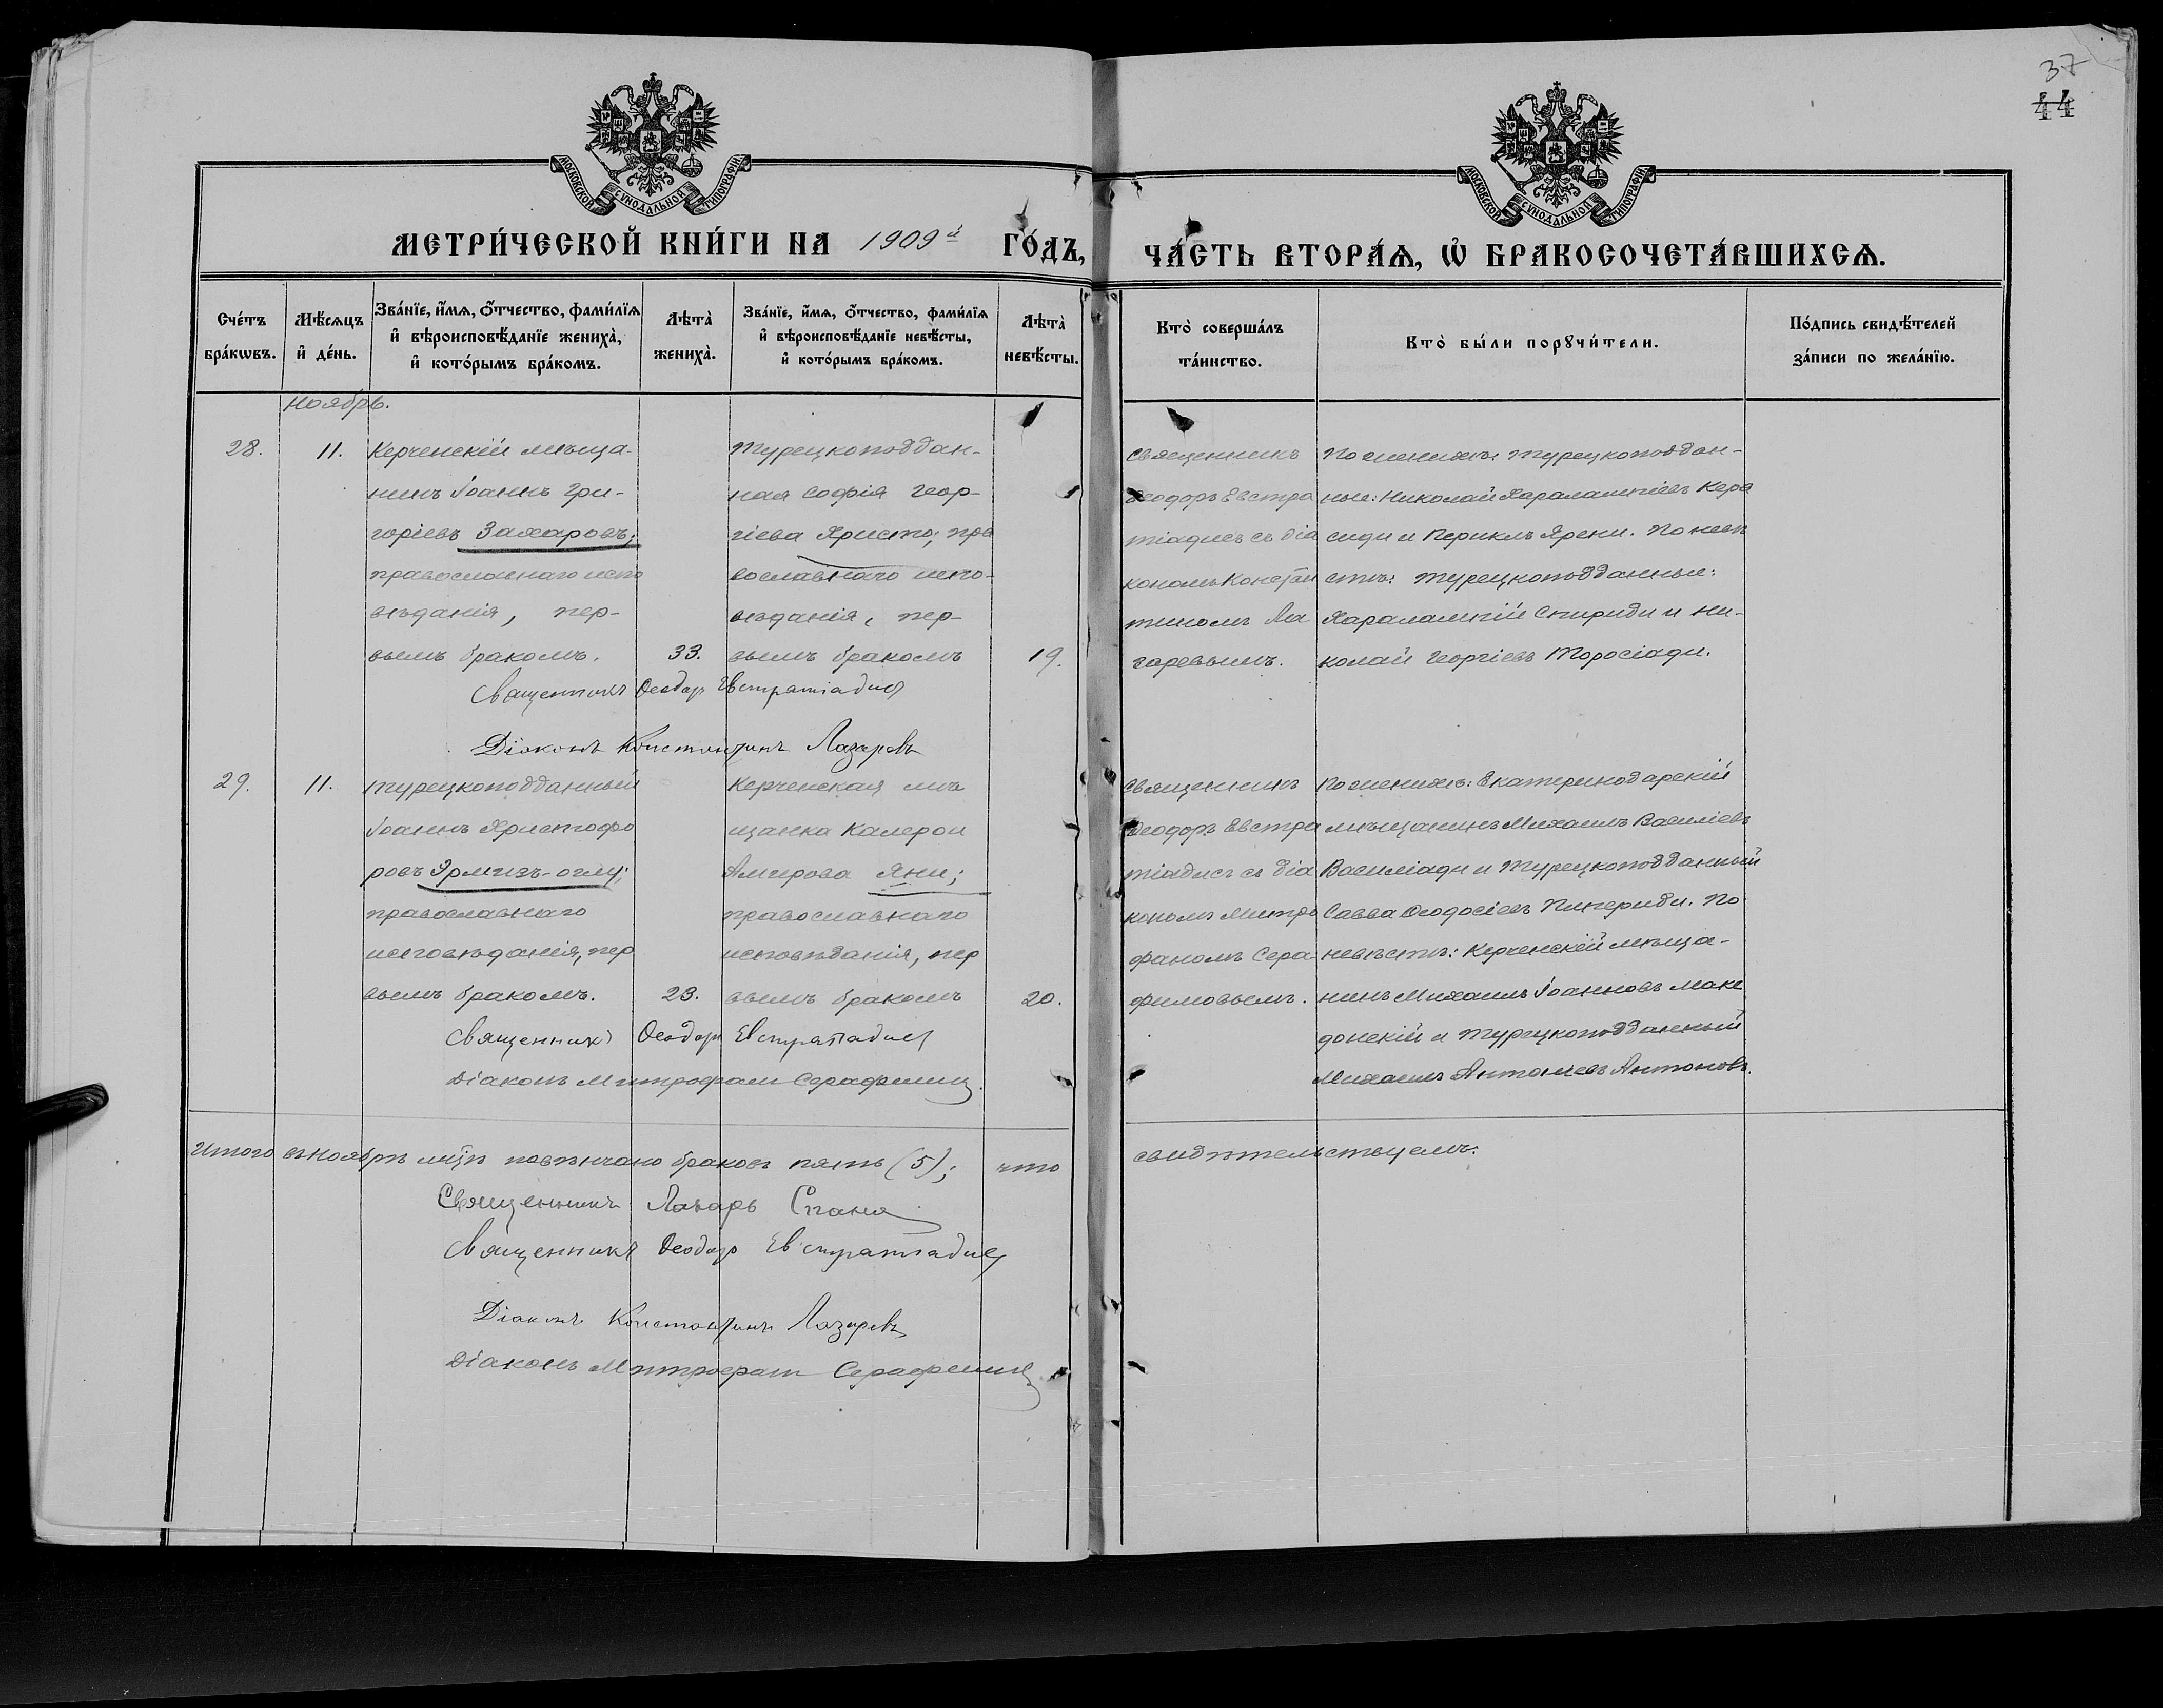 37
44
МОСКОВСКОЙ СѴНОДАЛЬНОЙ ТИПОГРАФІИ
МОСКОВСКОЙ СѴНОДАЛЬНОЙ ТИПОГРАФІИ
МЕТРИ́ЧЕСКОЙ КНИ́ГИ НА 1909й ГО́ДЪ,
ЧА́СТЬ ВТОРА́Ѧ, Ѡ҆ БРАКОСОЧЕТА́ВШИХСѦ.
Сче́тъ бра́кѡвъ.
Мѣ́сѧцъ и҆ де́нь.
Зва́нїе, и҆́мѧ, ѻ҆́тчество, фами́лїѧ и҆ вѣроисповѣ́данїе жениха̀, и҆ кото́рымъ бра́комъ.
Лѣта̀ жениха̀.
Зва́нїе, и҆́мѧ, ѻ҆́тчество, фами́лїѧ и҆ вѣроисповѣ́данїе невѣ́сты, и҆ кото́рымъ бра́комъ.
Лѣта̀ невѣ́сты.
Кто̀ соверша́лъ та́инство.
Кто̀ бы́ли порꙋчи́тели.
По́дпись свидѣ́телей за́писи по жела́нїю.
Ноябрь.
28.
11.
Керченскій мѣща-
нинъ Іоаннъ Гри-
горіевъ Захаровъ;
православнаго испо
вѣданія, пер-
вымъ бракомъ.
33.
Турецкоподдан-
ная Софія Геор-
гіева Христо; пра
вославнаго испо-
вѣданія, пер-
вымъ бракомъ
19.
Священникъ
Ѳеодоръ Евстра
тіадисъ съ діа
кономъ Констан
тиномъ Ла-
заревымъ.
По женихѣ: турецкоподдан-
ные: Николай Харалампіевъ Кера
сиди и Периклъ Ярени. По невѣ
стѣ: турецкоподданные:
Харалампій Спириди и Ни-
колай Георгіевъ Торосіади.
Священникъ Ѳеодоръ Евстратіадисъ
Діаконъ Константинъ Лазаревъ
29.
11.
Турецкоподданный
Іоаннъ Христофо
ровъ Эрмизъ-оглу;
православнаго
исповѣданія, пер
вымъ бракомъ.
23.
Керченская мѣ
щанка Калерои
Амирова Яни;
православнаго
исповѣданія, пер
вымъ бракомъ
20.
Священникъ
Ѳеодоръ Евстра
тіадисъ съ діа
кономъ Митро
фаномъ Сера-
фимовымъ.
По женихѣ: Екатеринодарскій
мѣщанинъ Михаилъ Василіевъ
Василіади и турецкоподданный
Савва Ѳеодосіевъ Пипериди. По
невѣстѣ: Керченскій мѣща-
нинъ Михаилъ Іоанновъ Маке
донскій и турецкоподданный
Михаилъ Антоніевъ Антоновъ.
Священникъ Ѳеодоръ Евстратіадисъ
Діаконъ Митрофанъ
Итого въ Ноябрѣ мцѣ повѣнчано браковъ пять (5); что
свидѣтельствуемъ:
Священникъ Лазарь Спана
Священникъ Ѳеодоръ Евстратіадисъ
Діаконъ Константинъ Лазаревъ
Діаконъ Митрофанъ